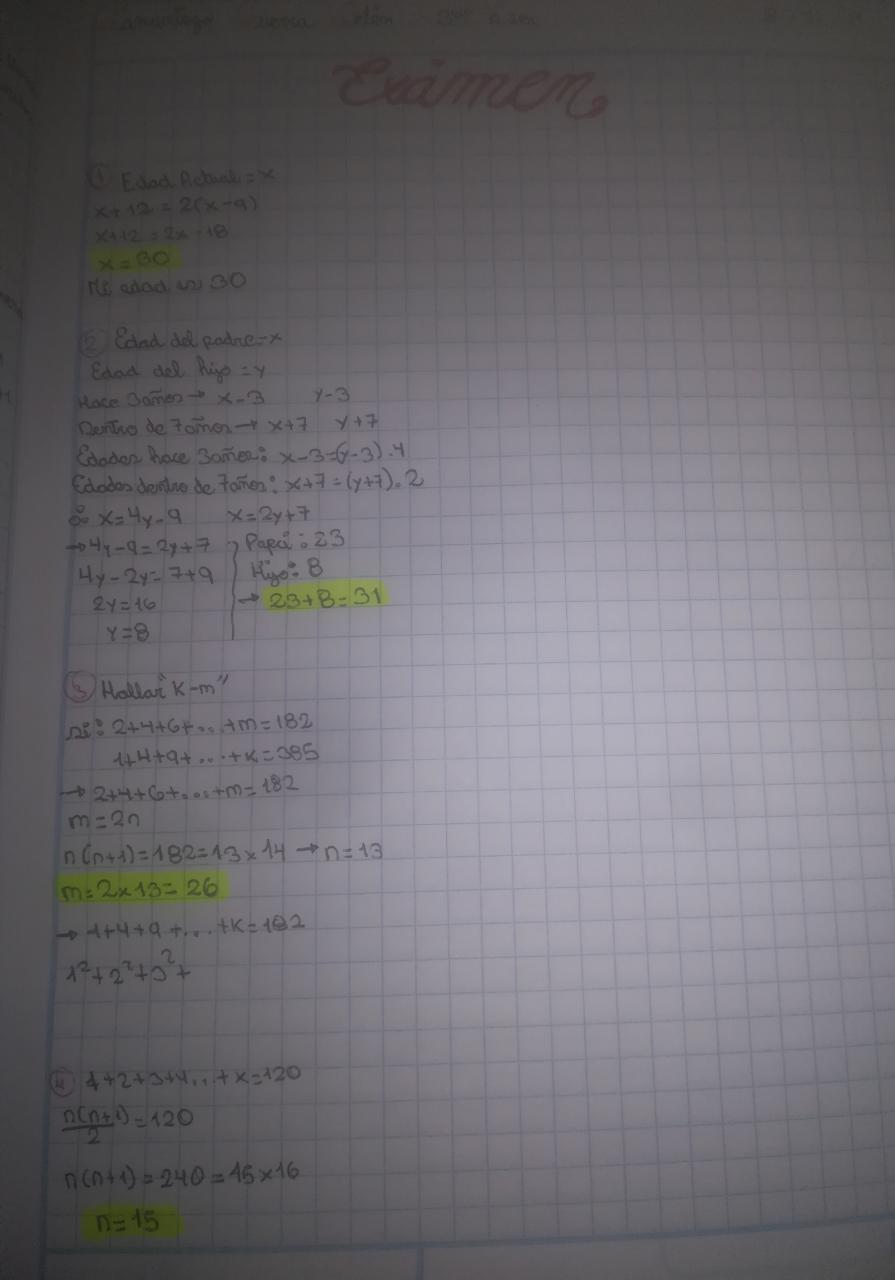 Exámen
① Edad Actual = x
x+12 = 2(x-9)
x+12 = 2x-18
x = 30
Mi edad es 30
② Edad del padre = x
Edad del hijo = y
Hace 3 años → x-3 y-3
Dentro de 7 años → x+7 y+7
Edades hace 3 años: x-3=(y-3).4
Edades dentro de 7 años: x+7=(y+7).2
∴ x=4y-9 x=2y+7
→ 4y-9=2y+7
4y-2y=7+9
2y=16
y=8
Papá: 23
Hijo: 8
→ 23+8=31
③ Hallar "K-m"
si: 2+4+6+...+m=182
1+4+9+...+k=385
→ 2+4+6+...+m=182
m=2n
n(n+1)=182=13x14 → n=13
m=2x13=26
→ 1+4+9+...+k=182
1²+2²+3²+
④ 1+2+3+4...+x=120
n(n+1)/2=120
n(n+1)=240=15x16
n=15